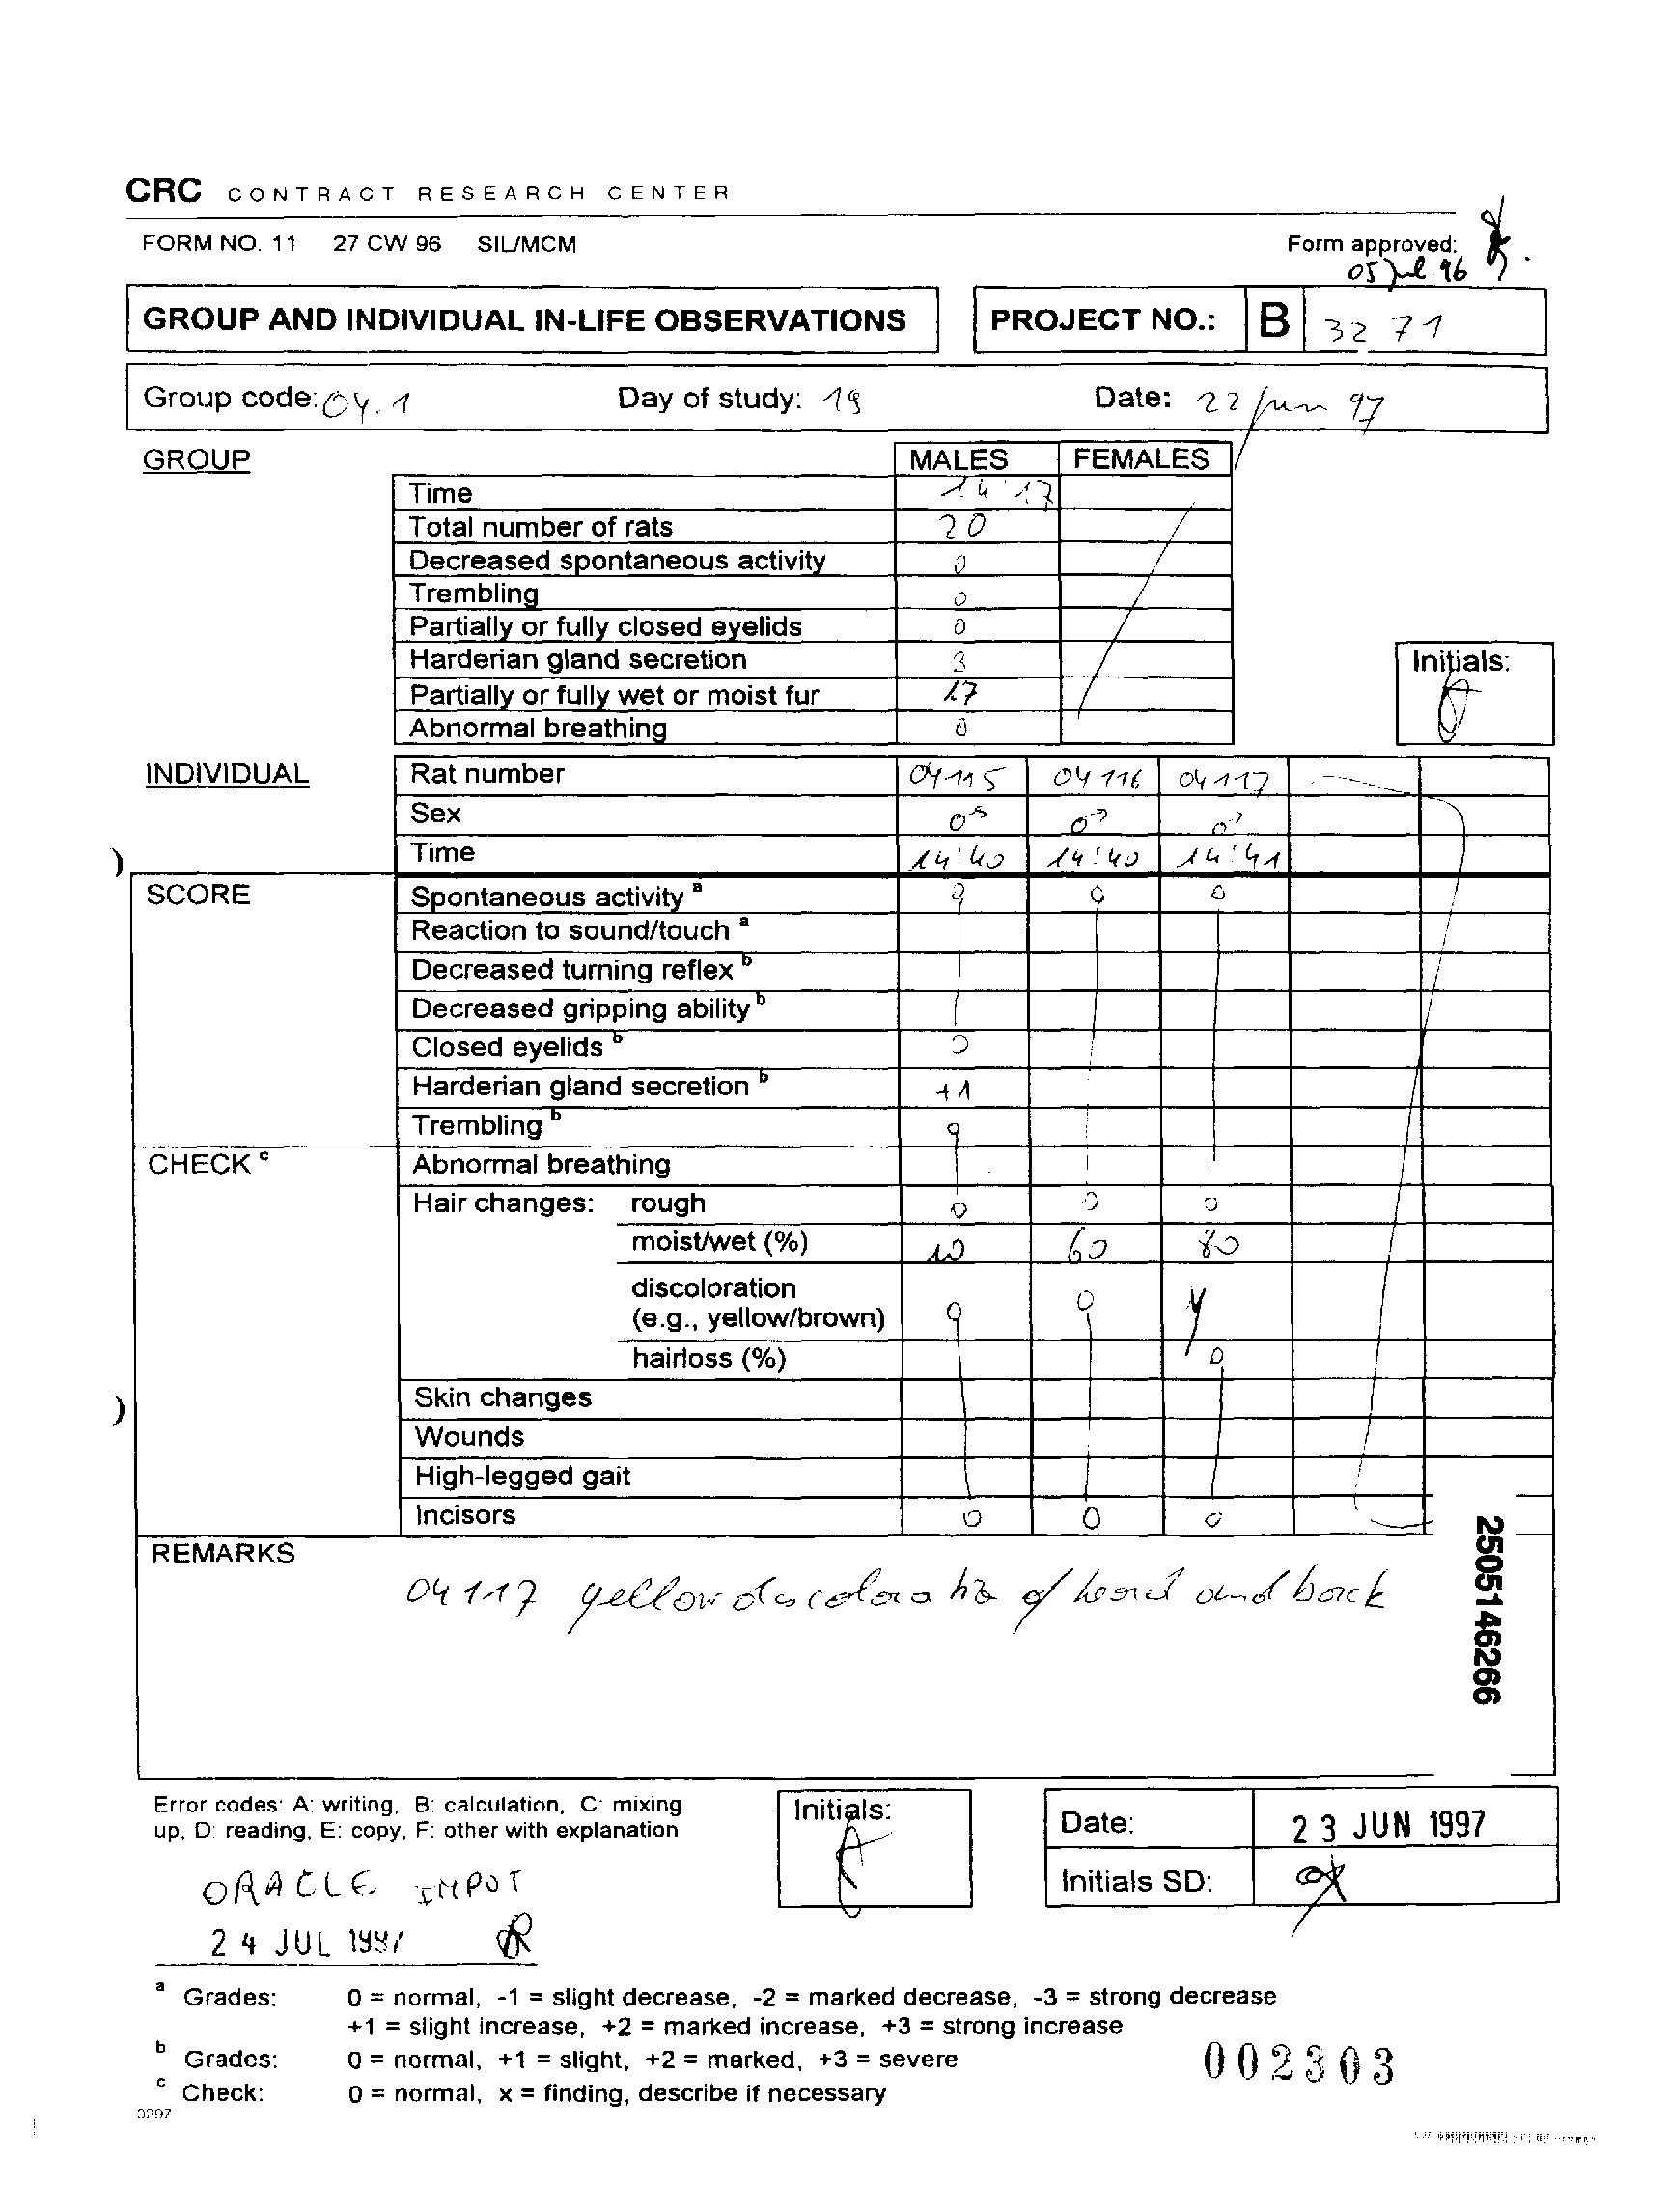 CRC CONTRACT RESEARCH CENTER
FORM NO. 11 27 CW 96 SIL/MCM Form approved:
05 Jul 96
GROUP AND INDIVIDUAL IN-LIFE OBSERVATIONS PROJECT NO.: B 32 71
Group code: 04.1 Day of study: 19 Date: 22 Jun 97
GROUP MALES FEMALES
Time 14:17
Total number of rats 20
Decreased spontaneous activity 0
Trembling 0
Partially or fully closed eyelids 0
Harderian gland secretion 3 Initials:
Partially or fully wet or moist fur 17
Abnormal breathing 0
INDIVIDUAL Rat number 04115 04116 04117
Sex ♂ ♂ ♂
Time 14:40 14:40 14:41
SCORE Spontaneous activity a 0 0 0
Reaction to sound/touch a
Decreased turning reflex b
Decreased gripping ability b
Closed eyelids b 0
Harderian gland secretion b +1
Trembling b 0
CHECK c Abnormal breathing
Hair changes: rough 0 0 0
moist/wet (%) 10 60 80
discoloration
(e.g., yellow/brown) 0 0 y
hairloss (%) 0
Skin changes
Wounds
High-legged gait
Incisors 0 0 0
REMARKS
04117 yellow discoloration of head and back
2505146266
Error codes: A: writing, B: calculation, C: mixing
up, D: reading, E: copy, F: other with explanation
Initials:
Date: 23 JUN 1997
Initials SD:
ORACLE INPUT
24 JUL 1997
a Grades: 0 = normal, -1 = slight decrease, -2 = marked decrease, -3 = strong decrease
+1 = slight increase, +2 = marked increase, +3 = strong increase
b Grades: 0 = normal, +1 = slight, +2 = marked, +3 = severe
c Check: 0 = normal, x = finding, describe if necessary
002303
0297